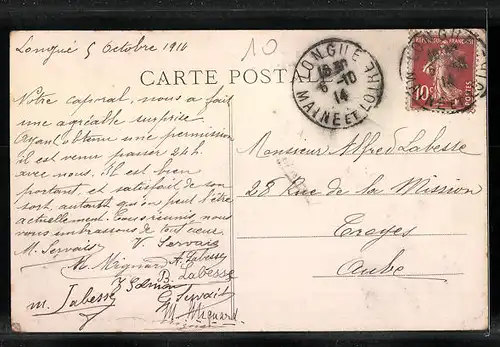 Longué 5 Octobre 1914
10
CARTE POSTALE
LONGUÉ
6 -10
14
MAINE ET LOIRE
RÉPUBLIQUE FRANÇAISE
10c
POSTES
Notre caporal, nous a fait
une agréable surprise.
Ayant obtenu une permission
il est venu passer 24h.
avec nous. Il est bien
portant, et satisfait de son
sort, autant qu'on peut l'être
actuellement. Tous réunis, nous
vous embrassons de tout cœur.
M. Servais V. Servais
M. Mignard A. Labesse
B. Labesse
M. Labesse G. Servais
M. Mignard
Monsieur Alfred Labesse
28 Rue de la Mission
Troyes
Aube